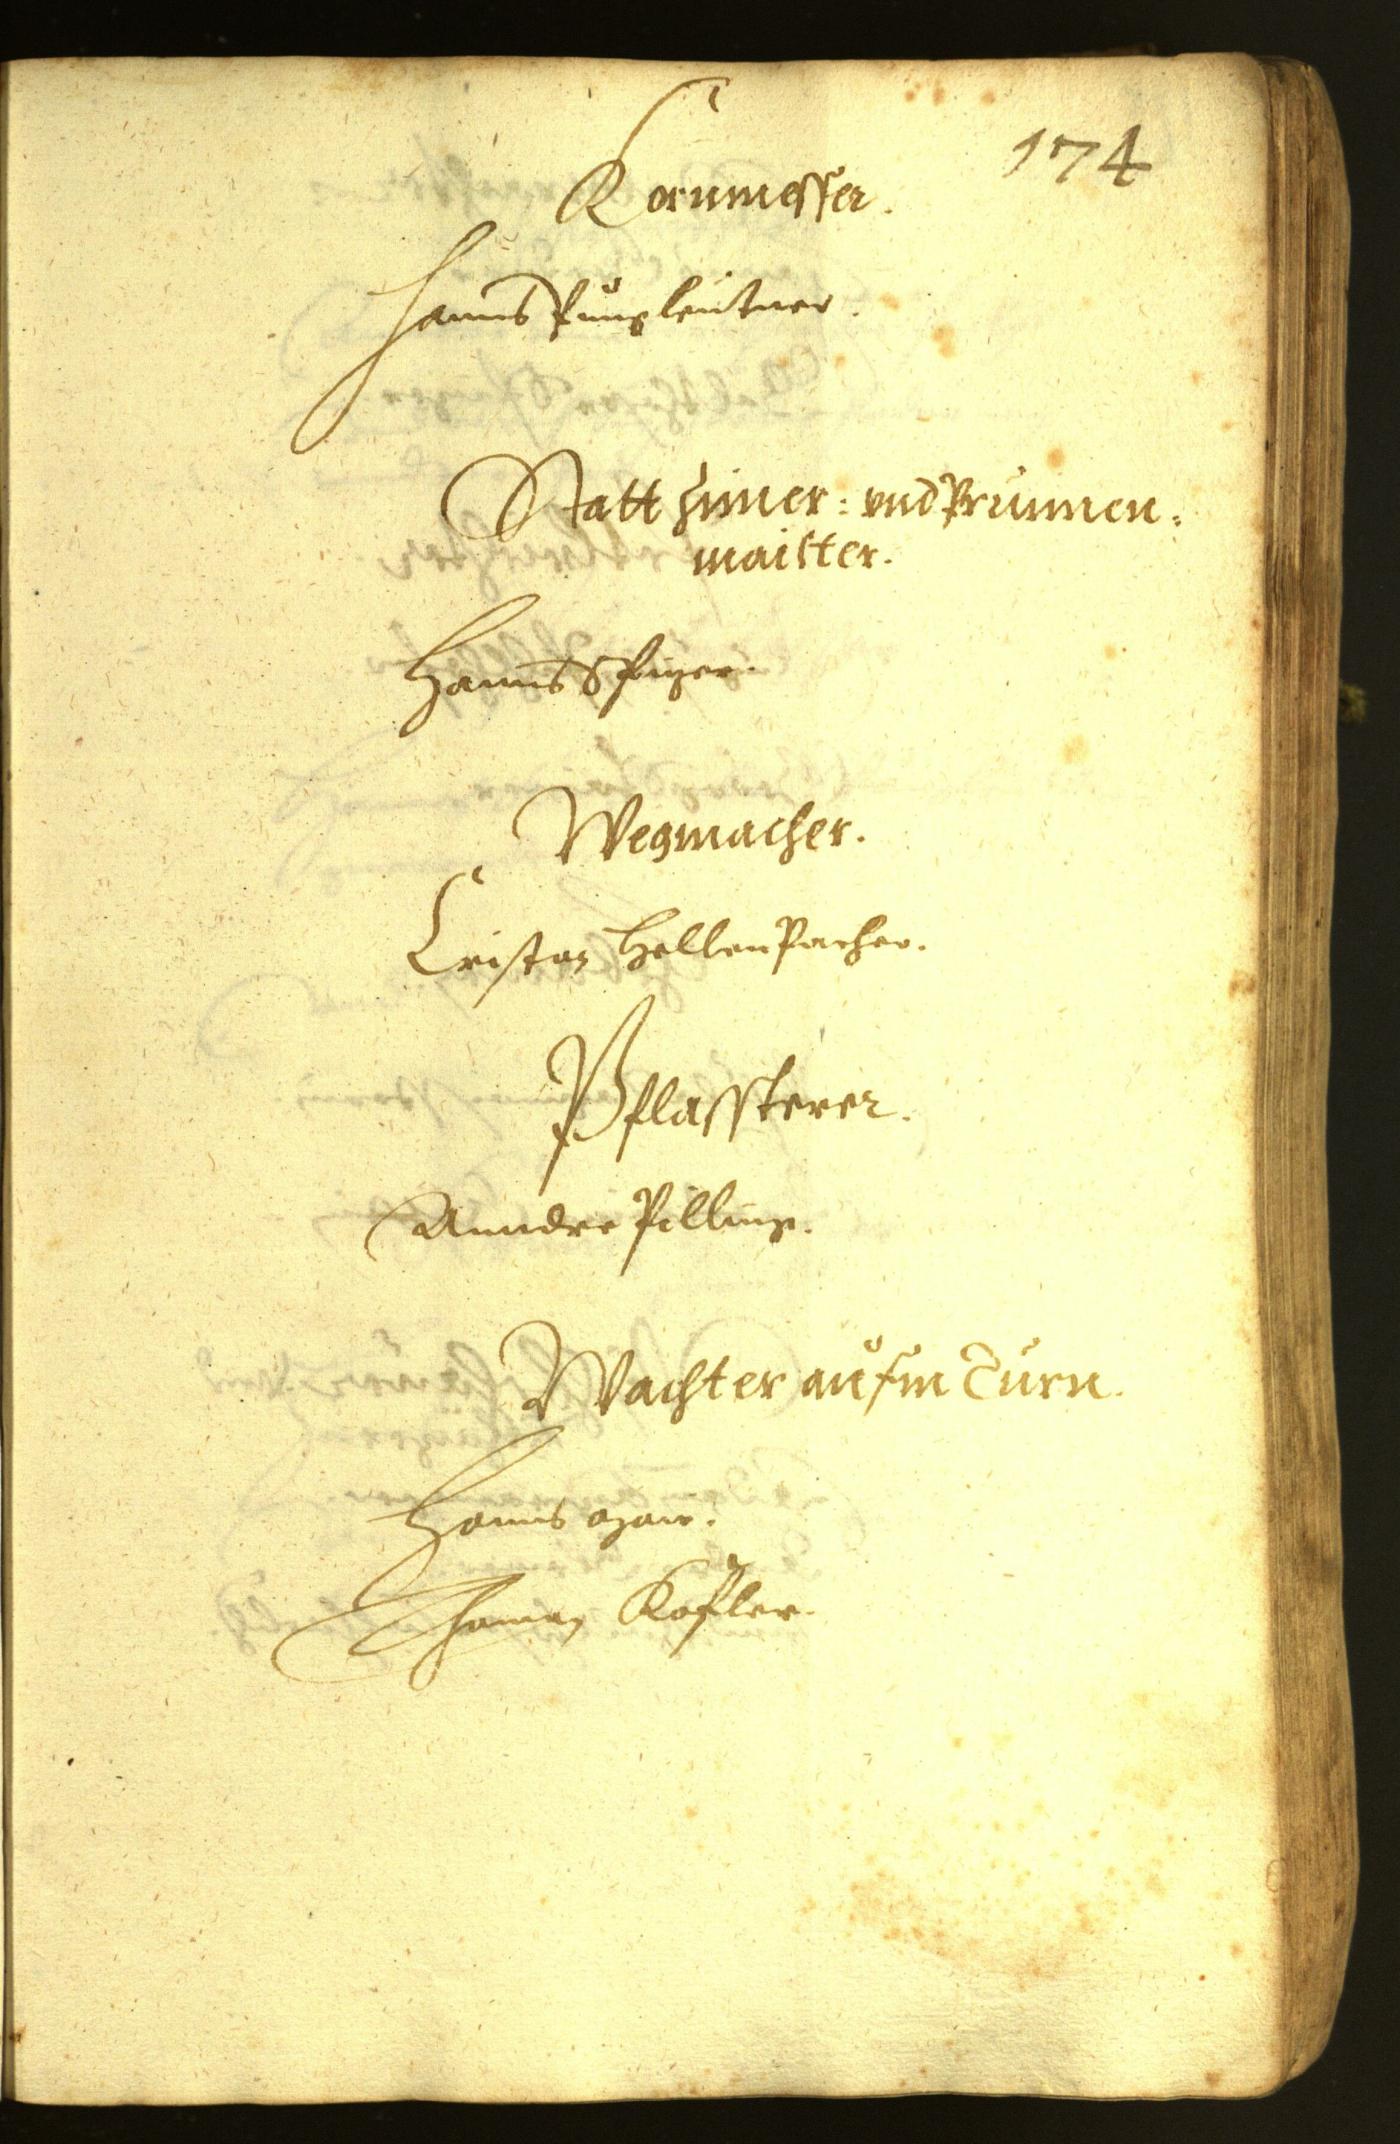 174
Kornmesser.
Hanns Pungleutner.
Statt Zimer: und Prunnen:
maister.
Hanns Spizer.
Wegmacher.
Cristan Hellenpacher.
Pflassterer.
Anndre Pilling.
Wachter aufm Turn.
Hanns
Thaman Kofler.